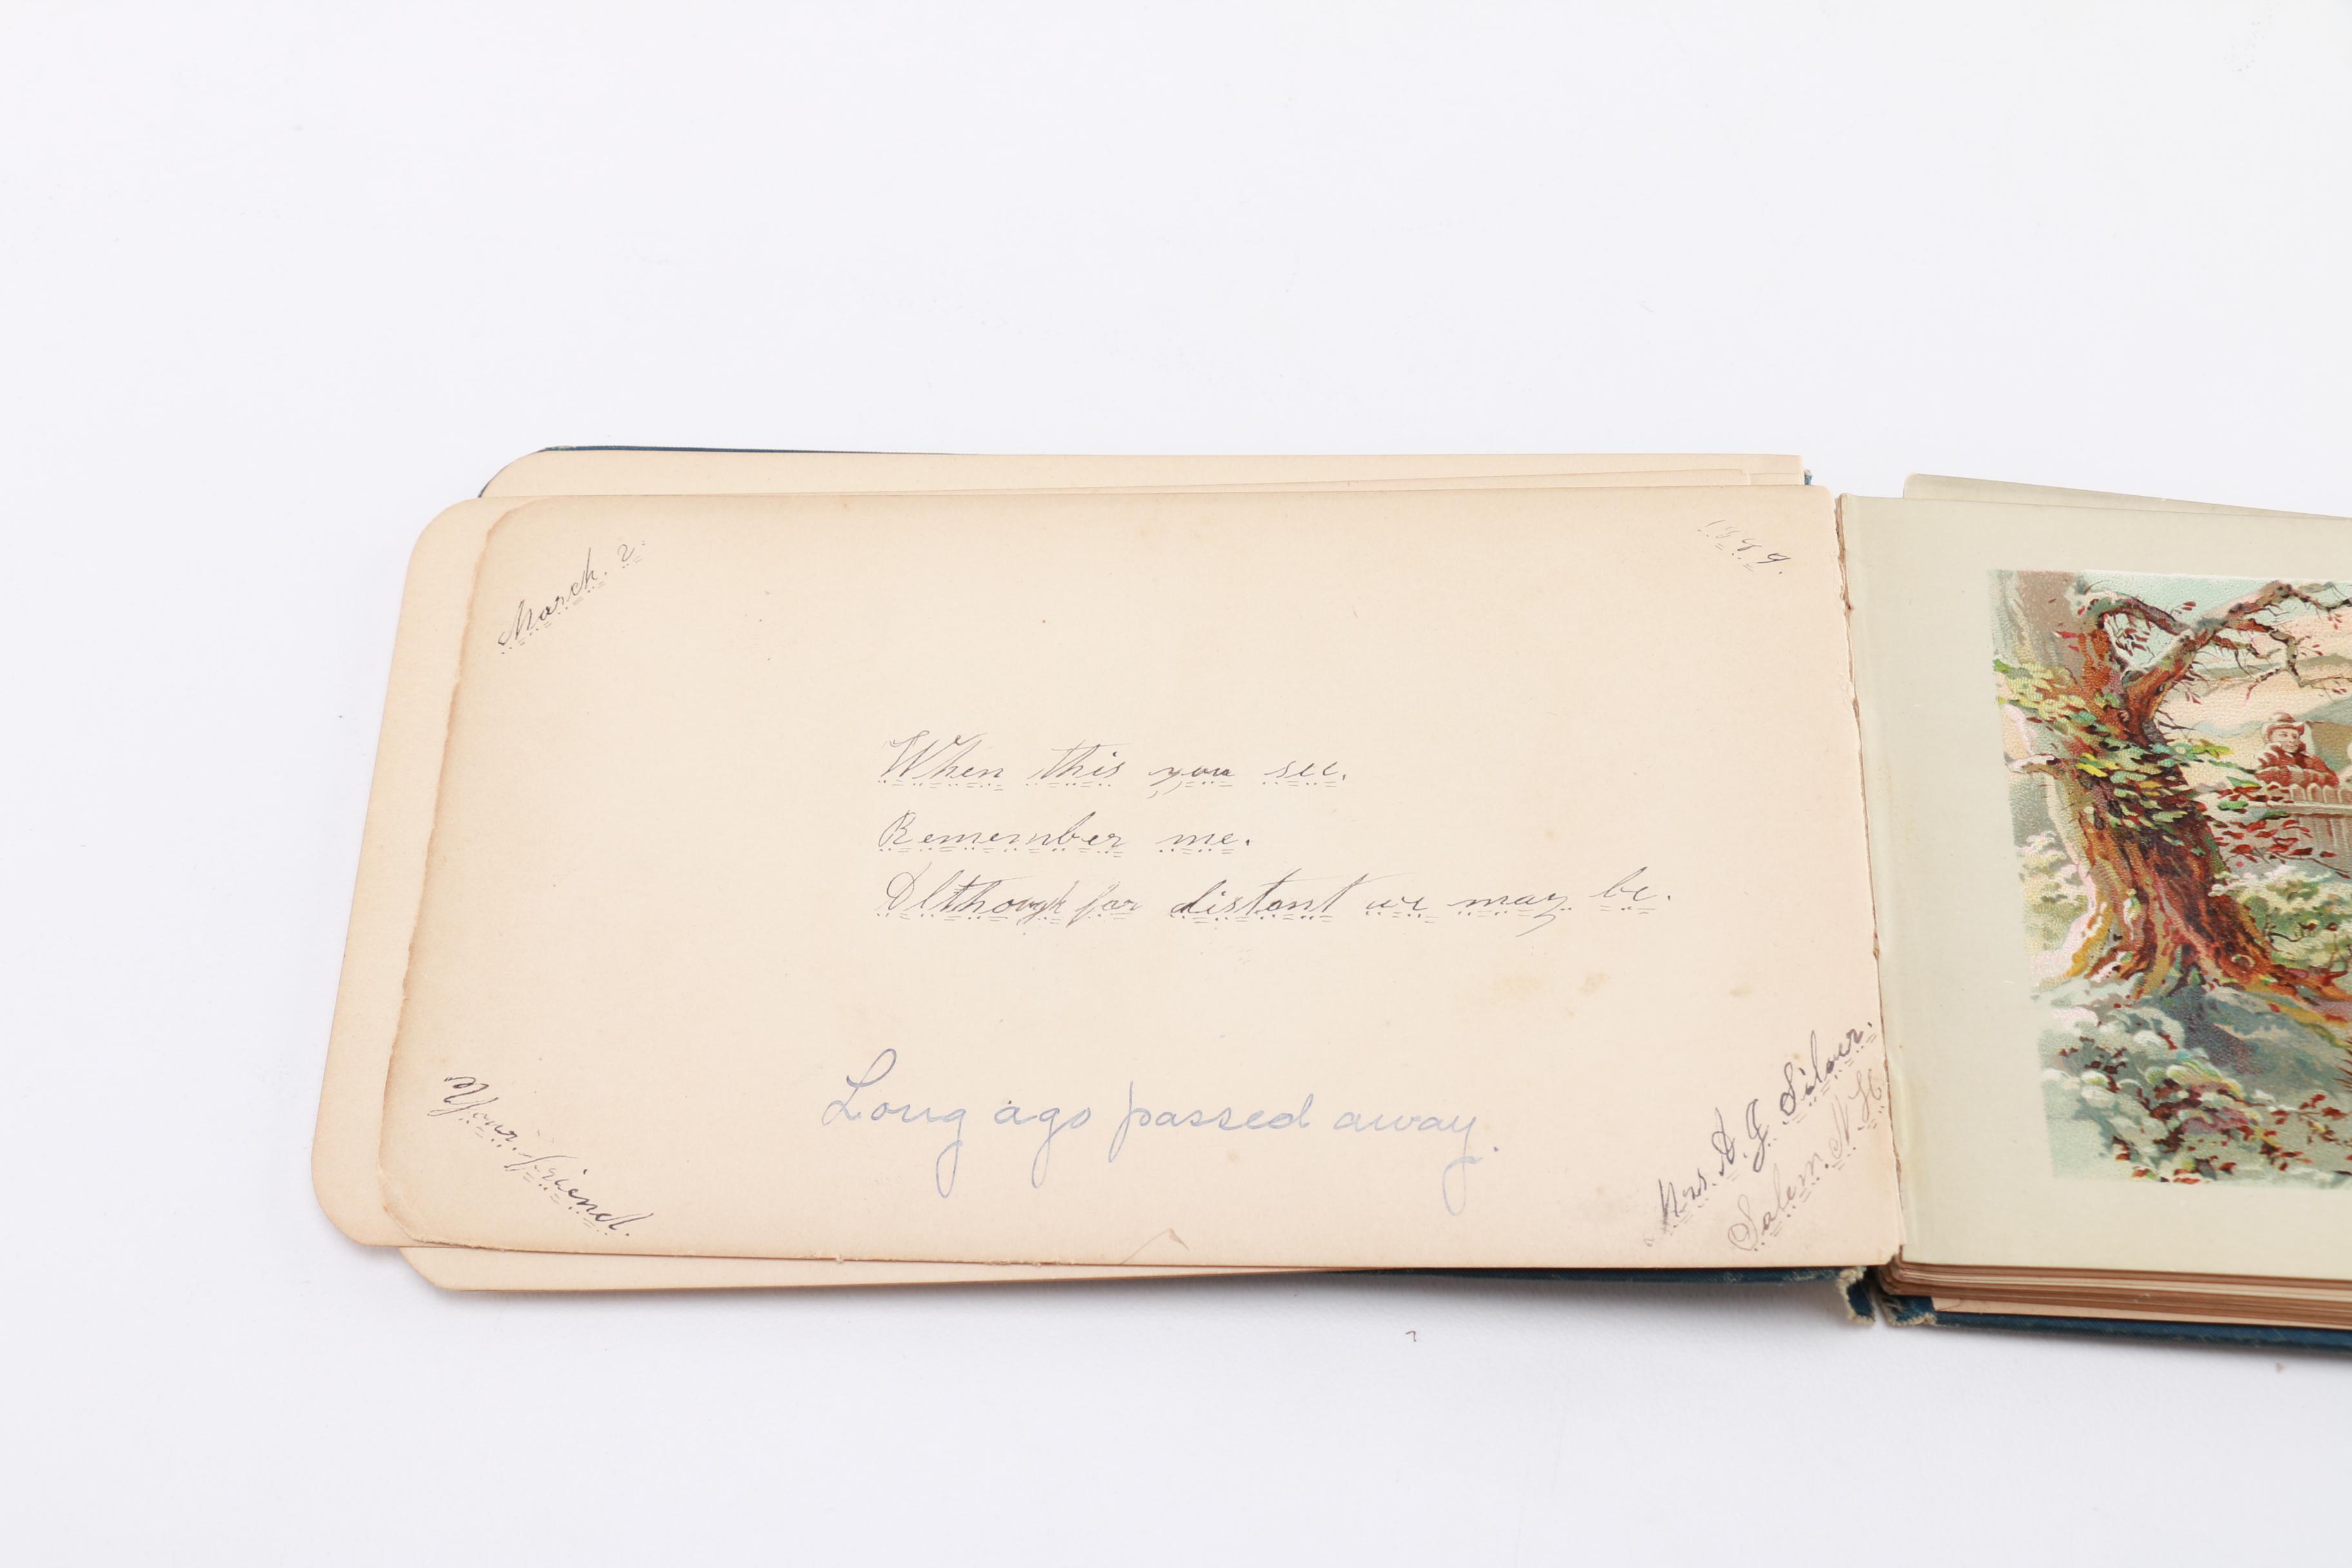 March. 2.
1899.
When this you see.
Remember me.
Although far distant we may be.
Your friend.
Long ago passed away.
Mrs. A. J. Silver.
Salem. N. H.